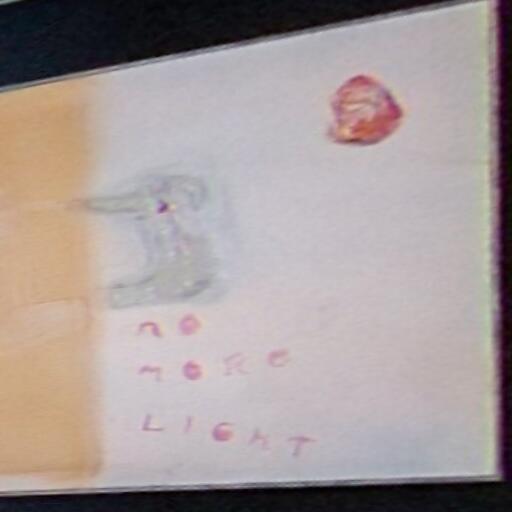 no
more
LIGHT